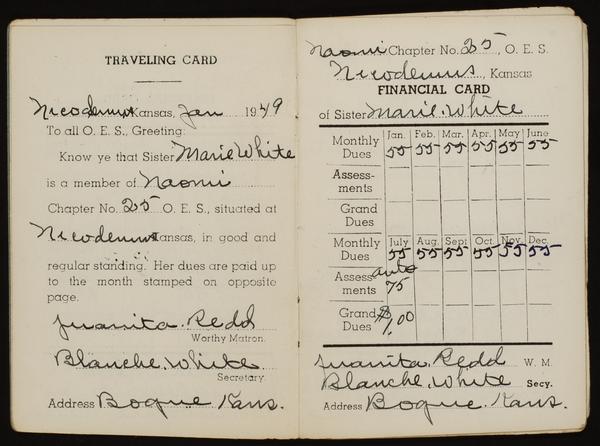 TRAVELING CARD
Nicodemus Kansas, Jan 1949
To all O. E. S., Greeting:
Know ye that Sister Marie White
is a member of Naomi
Chapter No. 25 O. E. S., situated at
Nicodemus Kansas, in good and
regular standing. Her dues are paid up
to the month stamped on opposite
page.
Juanita Redd
Worthy Matron.
Blanche White
Secretary.
Address Bogue, Kans.
Naomi Chapter No. 25, O. E. S.
Nicodemus, Kansas
FINANCIAL CARD
of Sister Marie White
Monthly Dues Jan. Feb. Mar. Apr. May June
55 55 55 55 55 55
Assess-
ments
Grand
Dues
Monthly Dues July Aug. Sept Oct. Nov. Dec.
55 55 55 55 55 55
Assess
ments 75
Grand
Dues $1.00
Juanita Redd W. M.
Blanche White Secy.
Address Bogue, Kans.